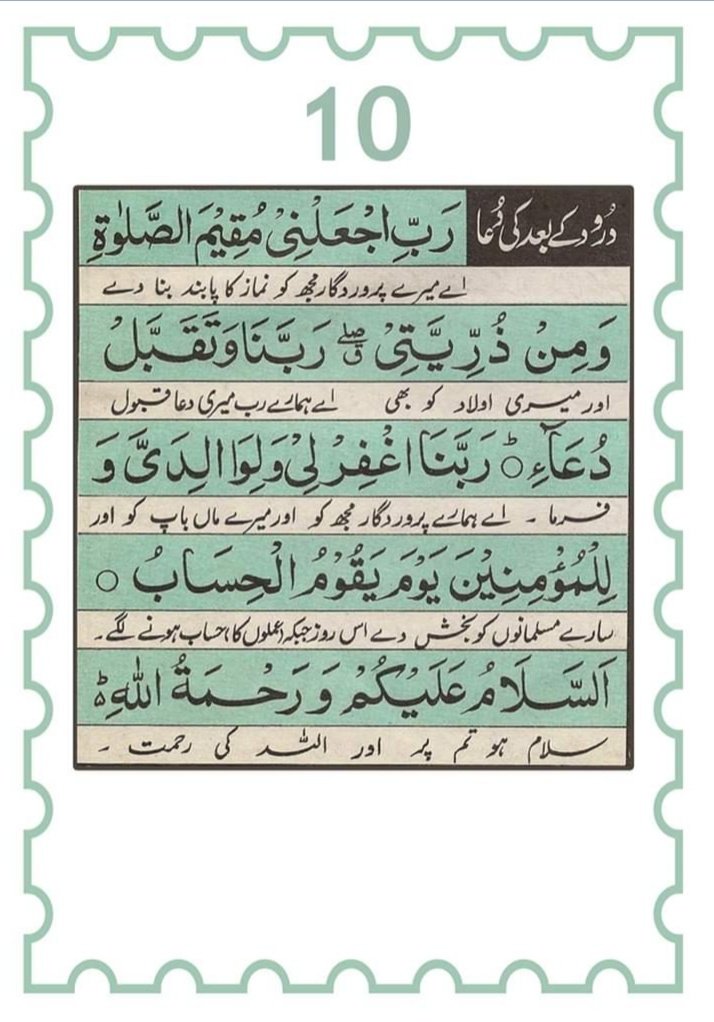 10
درود کے بعد کی دُعا
رَبِّ اجْعَلْنِیْ مُقِیْمَ الصَّلٰوةِ
اے میرے پروردگار مجھ کو نماز کا پابند بنا دے
وَمِنْ ذُرِّیَّتِیْ ۖق رَبَّنَا وَتَقَبَّلْ
اور میری اولاد کو بھی اے ہمارے رب میری دعا قبول
دُعَآءِ ○ؕ رَبَّنَا اغْفِرْ لِیْ وَلِوَالِدَیَّ وَ
فرما ۔ اے ہمارے پروردگار مجھ کو اور میرے ماں باپ کو اور
لِلْمُؤْمِنِیْنَ یَوْمَ یَقُوْمُ الْحِسَابُ ○
سارے مسلمانوں کو بخش دے اس روز جبکہ عملوں کا حساب ہونے لگے۔
اَلسَّلَامُ عَلَیْکُمْ وَرَحْمَةُ اللهِ ؕ
سلام ہو تم پر اور اللہ کی رحمت ۔